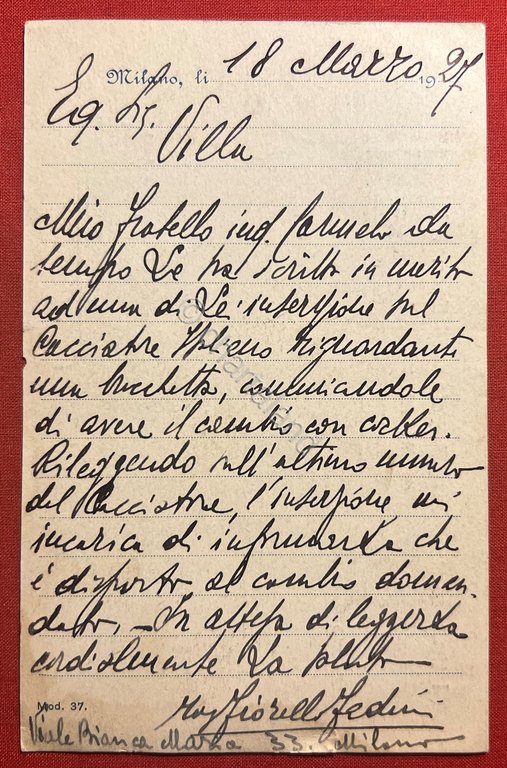 Milano, li 18 Marzo 1927
Eg. Sig.
Villa
Mio fratello ing. Carmelo da
tempo Le ha scritto in merito
ad una di Le' inserzione sul
Cacciatore Italiano riguardante
una , comunicandole
di avere il cambio con cocker.
Rileggendo sull'ultimo numero
del Cacciatore, l'inserzione mi
incarica di informarLa che
é disposto al cambio doman-
dato. - In attesa di leggerLa
cordialmente La saluto
Mod. 37. Rag. Fiorello
Viale Bianca Maria 33. Milano